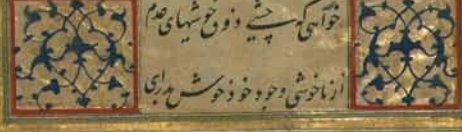 خواهی که چشی ذوق خوشیهای عدم
از ناخوشی وجود خود خوش برای